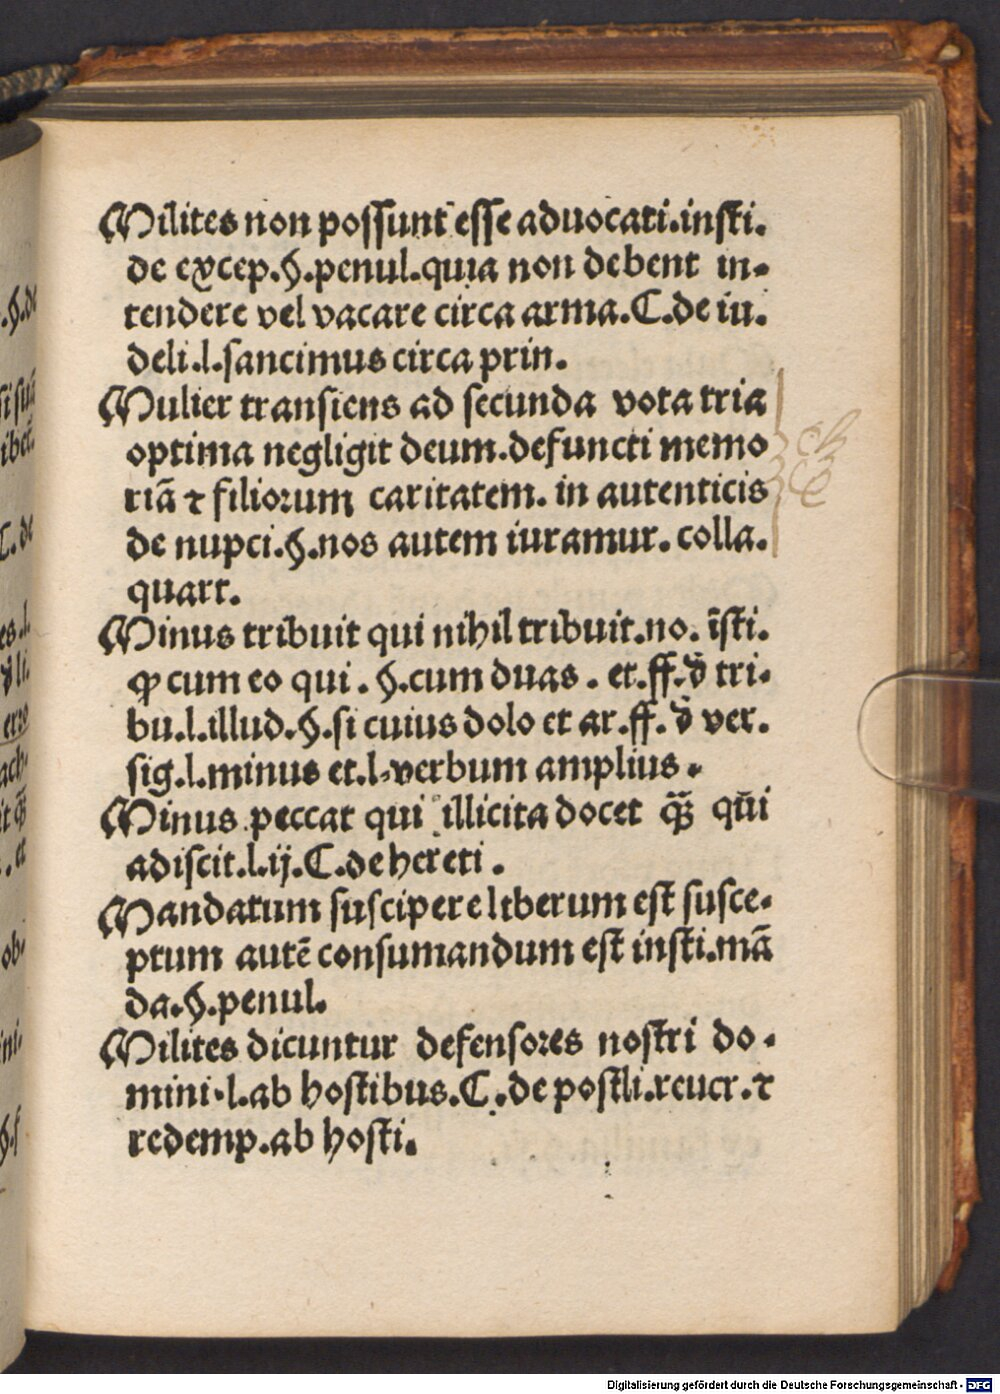 Milites non possunt esse aduocati.insti.
de excep.§.penul.quia non debent in-
tendere vel vacare circa arma.C.de iu.
deli.l.sancimus circa prin.
Mulier transiens ad secunda vota tria
optima negligit deum.defuncti memo
riā ⁊ filiorum caritatem. in autenticis
de nupci.§.nos autem iuramur. colla.
quart.
Minus tribuit qui nihil tribuit.no. īsti.
ꝙ cum eo qui . §.cum duas . et.ff.đ tri-
bu.l.illud.§.si cuius dolo et ar.ff.đ ver.
sig.l.minus et.l.verbum amplius.
Minus peccat qui illicita docet qꝫ̄ qui
adiscit.l.ij.C.de hereti .
Mandatum suscipere liberum est susce-
ptum autē consumandum est insti.mā
da.§.penul.
Milites dicuntur defensores nostri do-
mini.l.ab hostibus.C.de postli.reuer.⁊
redemp.ab hosti.
Digitalisierung gefördert durch die Deutsche Forschungsgemeinschaft - DFG